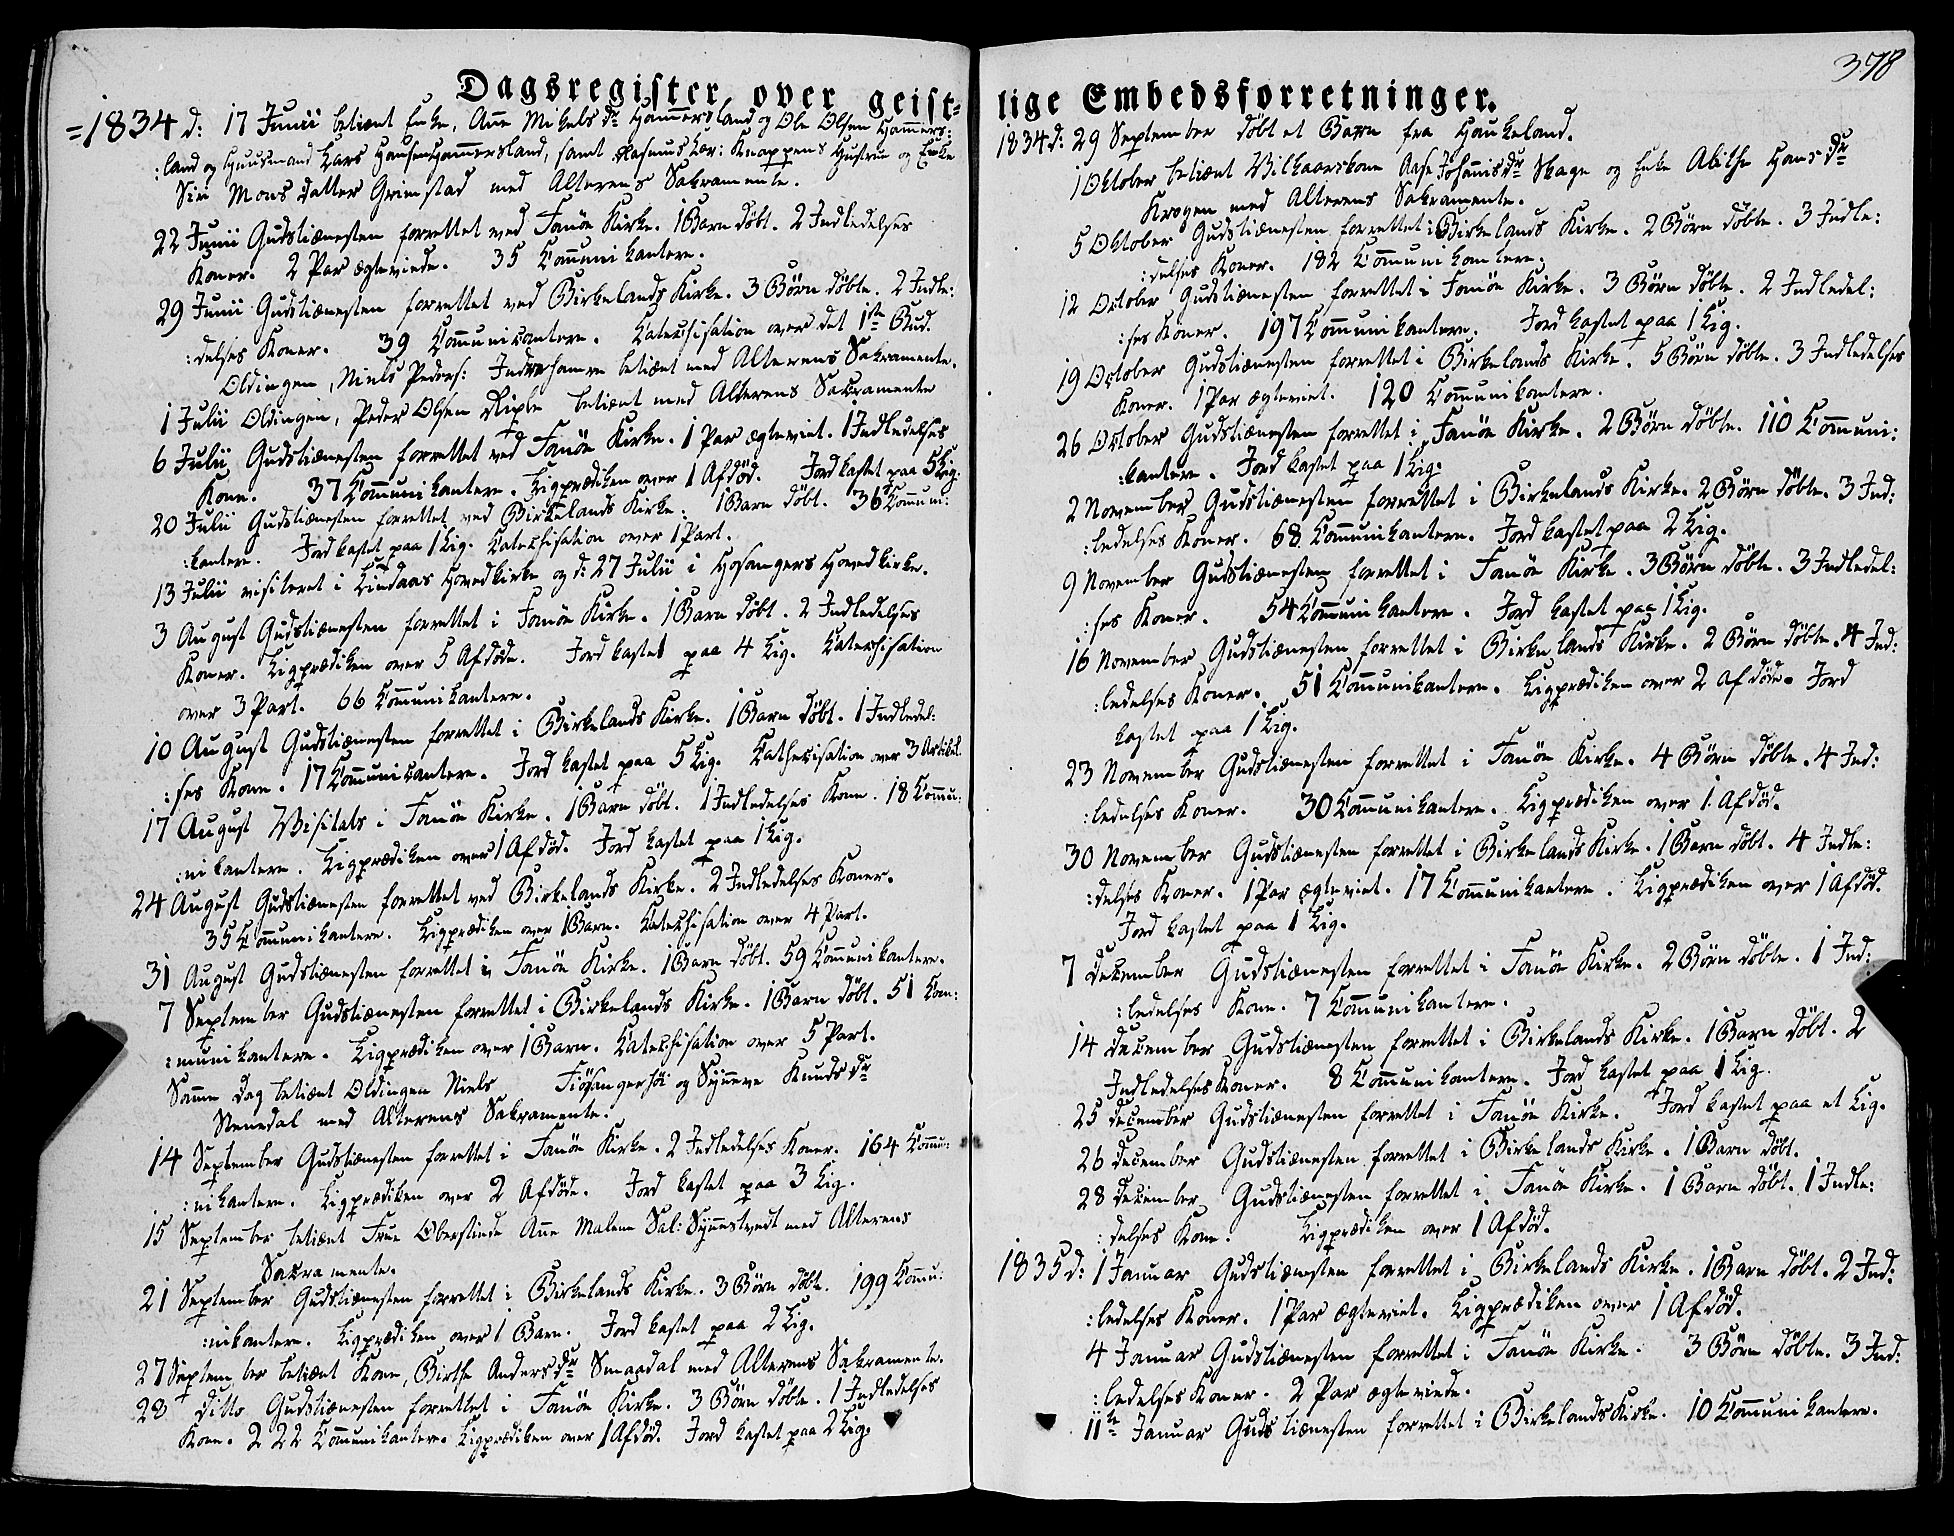 378
Dagsregister over geist=
=1834 d: 17 Junii betient Enke, Ane Mikels dr Hammersland og Ole Olsen Hammers:
:land og Huusmand Lars Hansen Hammersland, samt Rasmus Lar: Knappens Hustrue og Enke
Siri Mons datter Grimstad med Alterens Sakramente.
22 Junii Gudstienesten forrettet ved Fanöe Kirke. 1 Barn döbt. 2 Indledelses
Koner. 2 Par ægteviede. 35 Communikantere.
29 Junii Gudstienesten forrettet ved Birkelands Kirke. 3 Börn döbte. 2 Indle:
:delses Koner. 39 Communicantere. Katechisation over det 1ste Bud.
Oldingen, Niels Peders: Indrehamre betient med Alterens Sakramente.
1 Julii Oldingen, Peder Olsen Riple betient med Alterens Sakramente
6 Julii Gudstienesten forrettet ved Fanöe Kirke. 1 Par ægteviet. 1 Indledelses
Kone. 37 Communikantere. Ligprædiken over 1 Afdöd. Jord kastet paa 5 Lig.
20 Julii Gudstienesten forrettet ved Birkelands Kirke: 1 Barn döbt. 36 Communi:
:kantere. Jord kastet paa 1 Lig. Katechisation over 1 Part.
13 Julii visiteret i Lindaas Hovedkirke og d: 27 Julii i Hosangers Hovedkirke.
3 August Gudstienesten forrettet i Fanöe Kirke. 1 Barn döbt. 2 Indledelses
Koner. Ligprædiken over 5 Afdöde. Jord kastet paa 4 Lig. Katechisation
over 3 Part. 66 Communikantere.
10 August Gudstienesten forrettet i Birkelands Kirke. 1 Barn döbt. 1 Indledel:
:ses Kone. 17 Communicantere. Jord kastet paa 5 Lig. Kathecisation over 3 Artikel.
17 August Visitats i Fanöe Kirke. 1 Barn döbt. 1 Indledelses Kone. 18 Commu:
:nikantere. Ligprædiken over 1 Afdöd. Jord kastet paa 1 Lig.
24 August Gudstienesten forrettet ved Birkelands Kirke. 2 Indledelses Koner.
35 Communikantere. Ligprædiken over 1 Barn. Katechisation over 4 Part.
31 August Gudstienesten forrettet i Fanöe Kirke. 1 Barn döbt. 59 Communikantere.
7 September Gudstienesten forrettet i Birkelands Kirke. 1 Barn döbt. 51 Com:
:munikantere. Ligprædiken over 1 Barn. Katechisation over 5 Part.
Samme dag betient Oldingen Niels Fiösangerhöi og Synneve Knuds dr
Stenedal med Alterens Sakramente.
14 September Gudstienesten forrettet i Fanöe Kirke. 2 Indledelses Koner. 164 Commu:
:nikantere. Ligprædiken over 2 Afdöde. Jord kastet paa 3 Lig.
15 September betient Frue Oberstinde Ane Malene Sal: Synnestvedt med Alterens
Sakramente.
21 September Gudstienesten forrettet i Birkelands Kirke. 3 Börn döbt. 199 Commu:
:nikantere. Ligprædiken over 1 Barn. Jord kastet paa 2 Lig.
27 September betient Kone, Birthe Anders dr Smaadal med Alterens Sakramente.
28 ditto Gudstienesten forrettet i Fanöe Kirke. 3 Börn döbte. 1 Indledelses
Kone. 222 Communikantere. Ligprædiken over 1 Afdöd. Jord kastet paa 2 Lig.
lige Embedsforretninger.
1834 d: 29 September döbt et Barn fra Haukeland.
1 Oktober betient Vilkaarskone Aase Johannis dr Skage og Enke Alithe Hans dr
Krogen med Alterens Sakramente.
5 Oktober Gudstienesten forrettet i Birkelands Kirke. 2 Börn döbte. 3 Indle:
:delses Koner. 182 Communikantere.
12 October Gudstienesten forrettet i Fanöe Kirke. 3 Börn döbte. 2 Indledel:
:ses Koner. 197 Communikantere. Jord kastet paa 1 Lig.
19 October Gudstienesten forrettet i Birkelands Kirke. 5 Börn döbte. 3 Indledelses
Koner. 1 Par ægteviet. 120 Communikantere.
26 October Gudstienesten forrettet i Fanöe Kirke. 2 Börn döbte. 110 Communi:
:kantere. Jord kastet paa 1 Lig.
2 November Gudstienesten forrettet i Birkelands Kirke. 2 Börn döbte. 3 Ind:
:ledelses Koner. 68 Communikantere. Jord kastet paa 2 Lig.
9 November Gudstienesten forrettet i Fanöe Kirke. 3 Börn döbte. 3 Indledel:
:ses Koner. 54 Communikantere. Jord kastet paa 1 Lig.
16 November Gudstienesten forrettet i Birkelands Kirke. 2 Börn döbte. 4 Ind:
:ledelses Koner. 51 Communikantere. Ligprædiken over 2 afdöde. Jord
kastet paa 1 Lig.
23 November Gudstienesten forrettet i Fanöe Kirke. 4 Börn döbte. 4 Ind:
:ledelses Koner. 30 Communikantere. Ligprædiken over 1 Afdöd.
30 November Gudstienesten forrettet i Birkelands Kirke. 1 Barn döbt. 4 Indle:
:delses Koner. 1 Par ægteviet. 17 Communikantere. Ligprædiken over 1 Afdöd.
Jord kastet paa 1 Lig.
7 december Gudstienesten forrettet i Fanöe Kirke. 2 Börn döbte. 1 Ind:
:ledelses Kone. 7 Communikantere.
14 december Gudstienesten forrettet i Birkelands Kirke. 1 Barn döbt. 2
Indledelses Koner. 8 Communikantere. Jord kastet paa 1 Lig.
25 december Gudstienesten forrettet i Fanöe Kirke. Jord kastet paa et Lig.
26 december Gudstienesten forrettet i Birkelands Kirke. 1 Barn döbt.
28 december Gudstienesten forrettet i Fanöe Kirke. 1 Barn döbt. 1 Indle:
:delses Kone. Ligprædiken over 1 Afdöd.
1835 d: 1 Januar Gudstienesten forrettet i Birkelands Kirke. 1 Barn döbt. 2 Ind:
:ledelses Koner. 1 Par ægteviet. Ligprædiken over 1 Afdöd.
4 Januar Gudstienesten forrettet i Fanöe Kirke. 3 Börn döbte. 3 Ind:
:ledelses Koner. 2 Par ægteviede.
11te Januar Gudstienesten forrettet i Birkelands Kirke. 10 Communikantere.